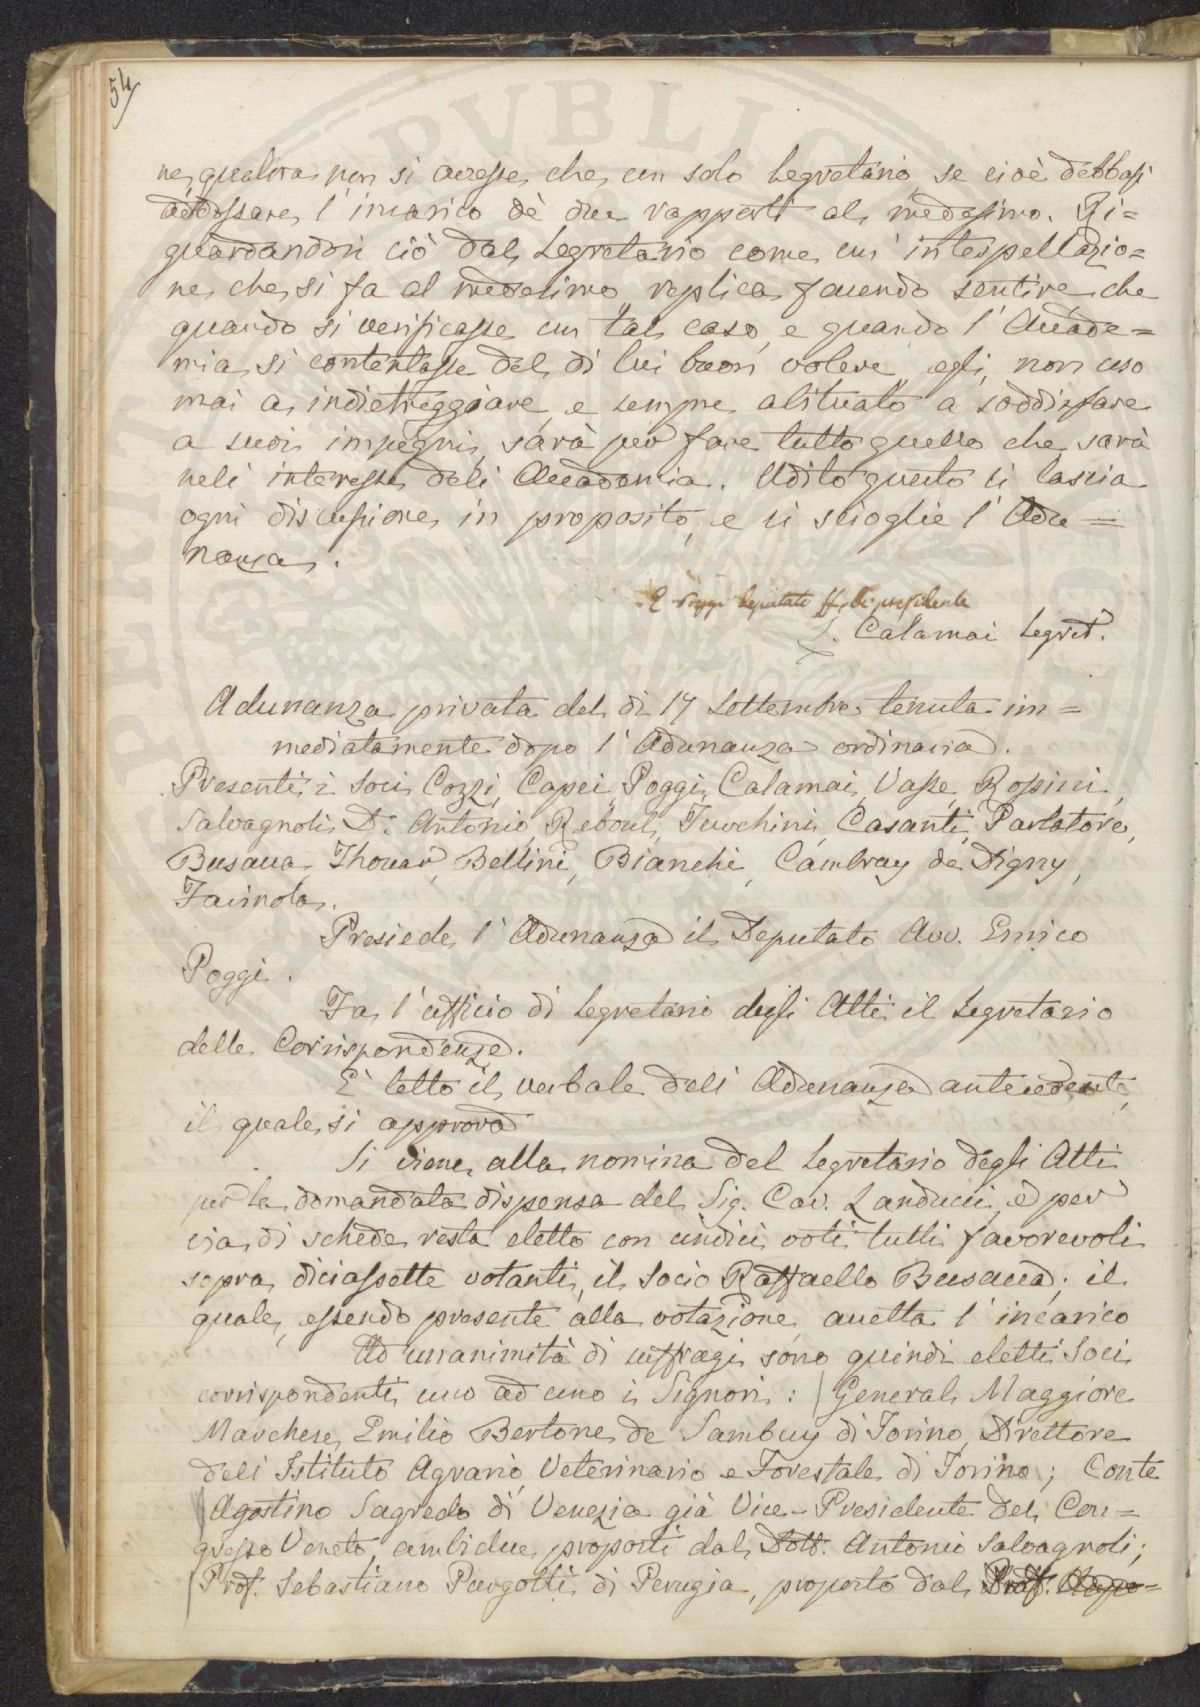 54
ne, qualora non si avesse che un solo Segretario, se cioè debbasi
addossare l'incarico de' due rapporti al medesimo. Ri=
guardandosi ciò dal Segretario come un'interpellazio=
ne che si fa al medesimo, replica facendo sentire che
quando si verificasse un tal caso, e quando l'Accade=
mia si contentasse del di lui buon volere, egli, non uso
mai a indietreggiare, e sempre abituato a soddisfare
a suoi impegni, sarà per fare tutto quello che sarà
nell'interesse dell'Accademia. Udito questo si lascia
ogni discussione in proposito, e si scioglie l'Adu=
nanza.
E Poggi Deputato ff. di presidente
L. Calamai Segret.
Adunanza privata del dì 17 Settembre tenuta im=
mediatamente dopo l'Adunanza ordinaria.
Presenti i Soci Cozzi, Capei, Poggi, Calamai, Vasse, Rossini,
Salvagnoli D. Antonio, Reboul, Turchini, Casanti, Parlatore,
Busacca, Thouar, Bellini, Bianchi, Cambray de Digny,
Tavinola.
Presiede l'Adunanza il Deputato Avv. Enrico
Poggi.
Fa l'ufficio di Segretario degli Atti il Segretario
delle Corrispondenze.
È letto il verbale dell'Adunanza antecedente,
il quale si approva
Si viene alla nomina del Segretario degli Atti
per la domandata dispensa del Sig. Cav. Landucci, e per
via di schede resta eletto con undici voti tutti favorevoli
sopra diciassette votanti, il Socio Raffaello Busacca; il
quale, essendo presente alla votazione accetta l'incarico
Ad unanimità di suffragi sono quindi eletti Soci
corrispondenti uno ad uno i Signori: General Maggiore
Marchese Emilio Bertone de Sambuy di Torino, Direttore
dell'Istituto Agrario, Veterinario e Forestale di Torino; Conte
Agostino Sagredo di Venezia già Vice-Presidente del Con=
gresso Veneto, ambidue proposti dal Dott. Antonio Salvagnoli;
Prof. Sebastiano Purgotti di Perugia, proposto dal Prof.